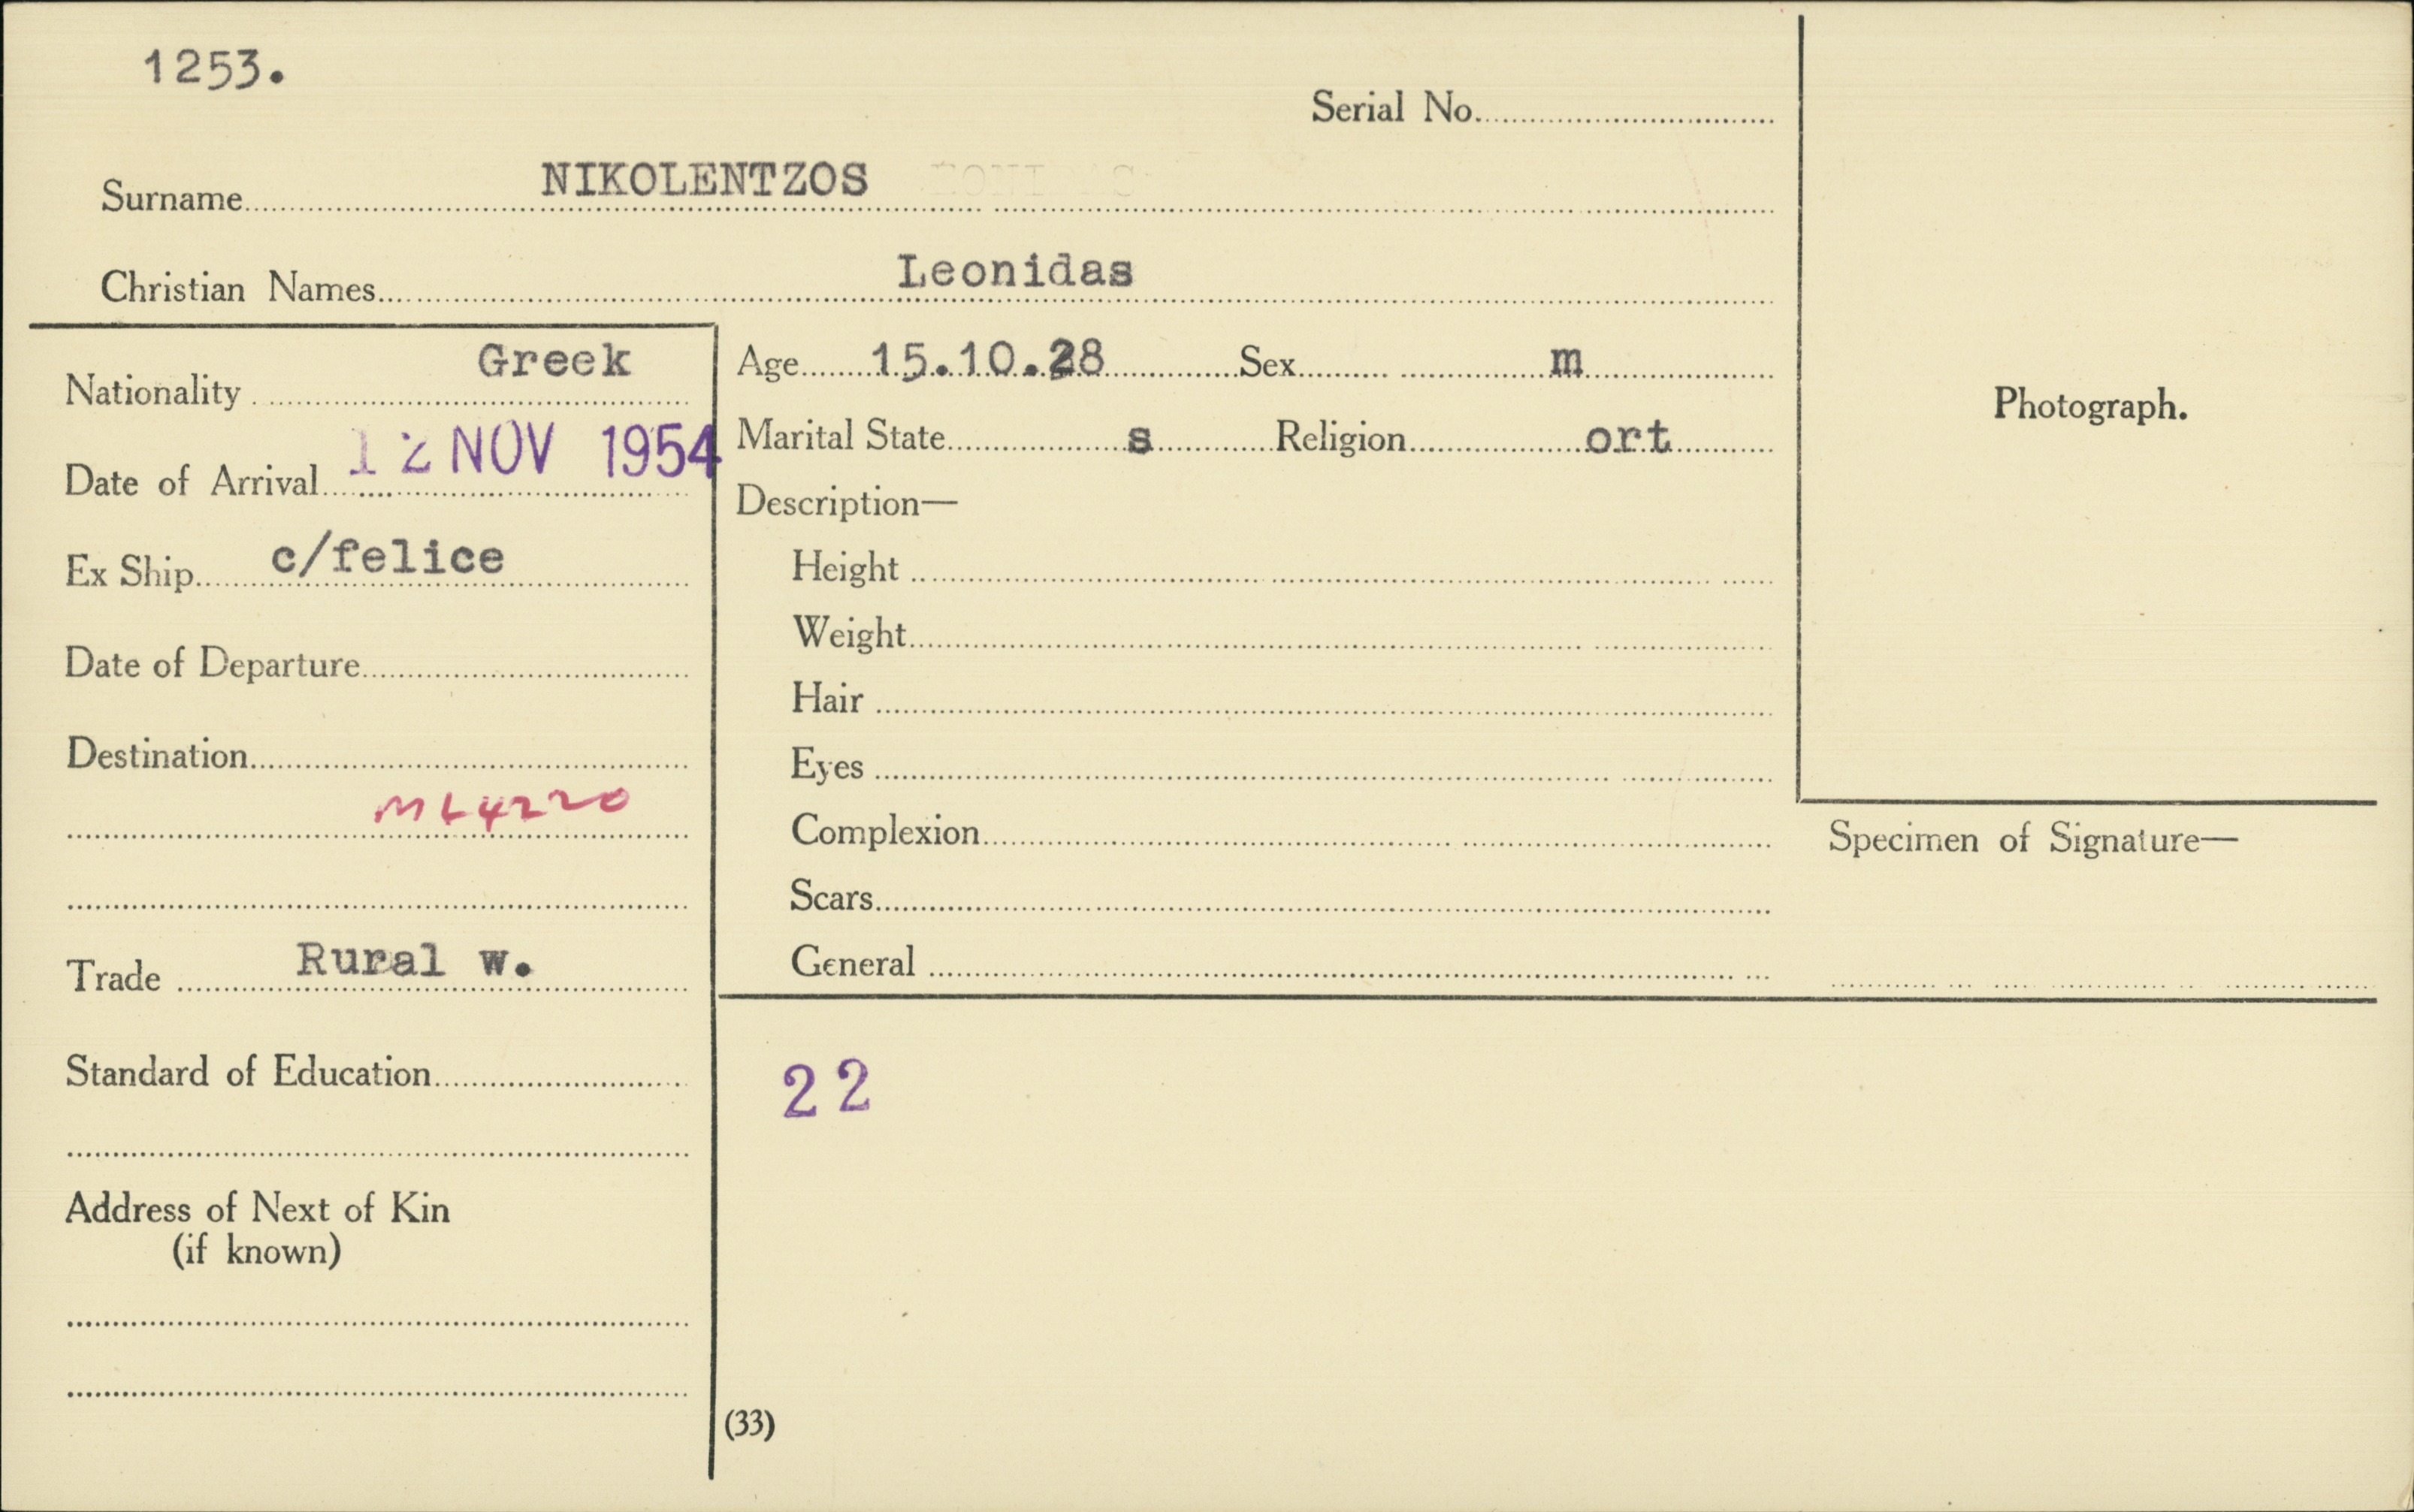 1253.
Serial No.
Surname NIKOLENTZOS
Christian Names Leonidas
Nationality Greek
Date of Arrival 12 NOV 1954
Ex Ship c/felice
Date of Departure
Destination
ML4220
Trade Rural w.
Standard of Education
Address of Next of Kin
(if known)
Age 15.10.28 Sex m
Marital State s Religion ort
Description—
Height
Weight
Hair
Eyes
Complexion
Scars
General
Photograph.
Specimen of Signature—
22
(33)